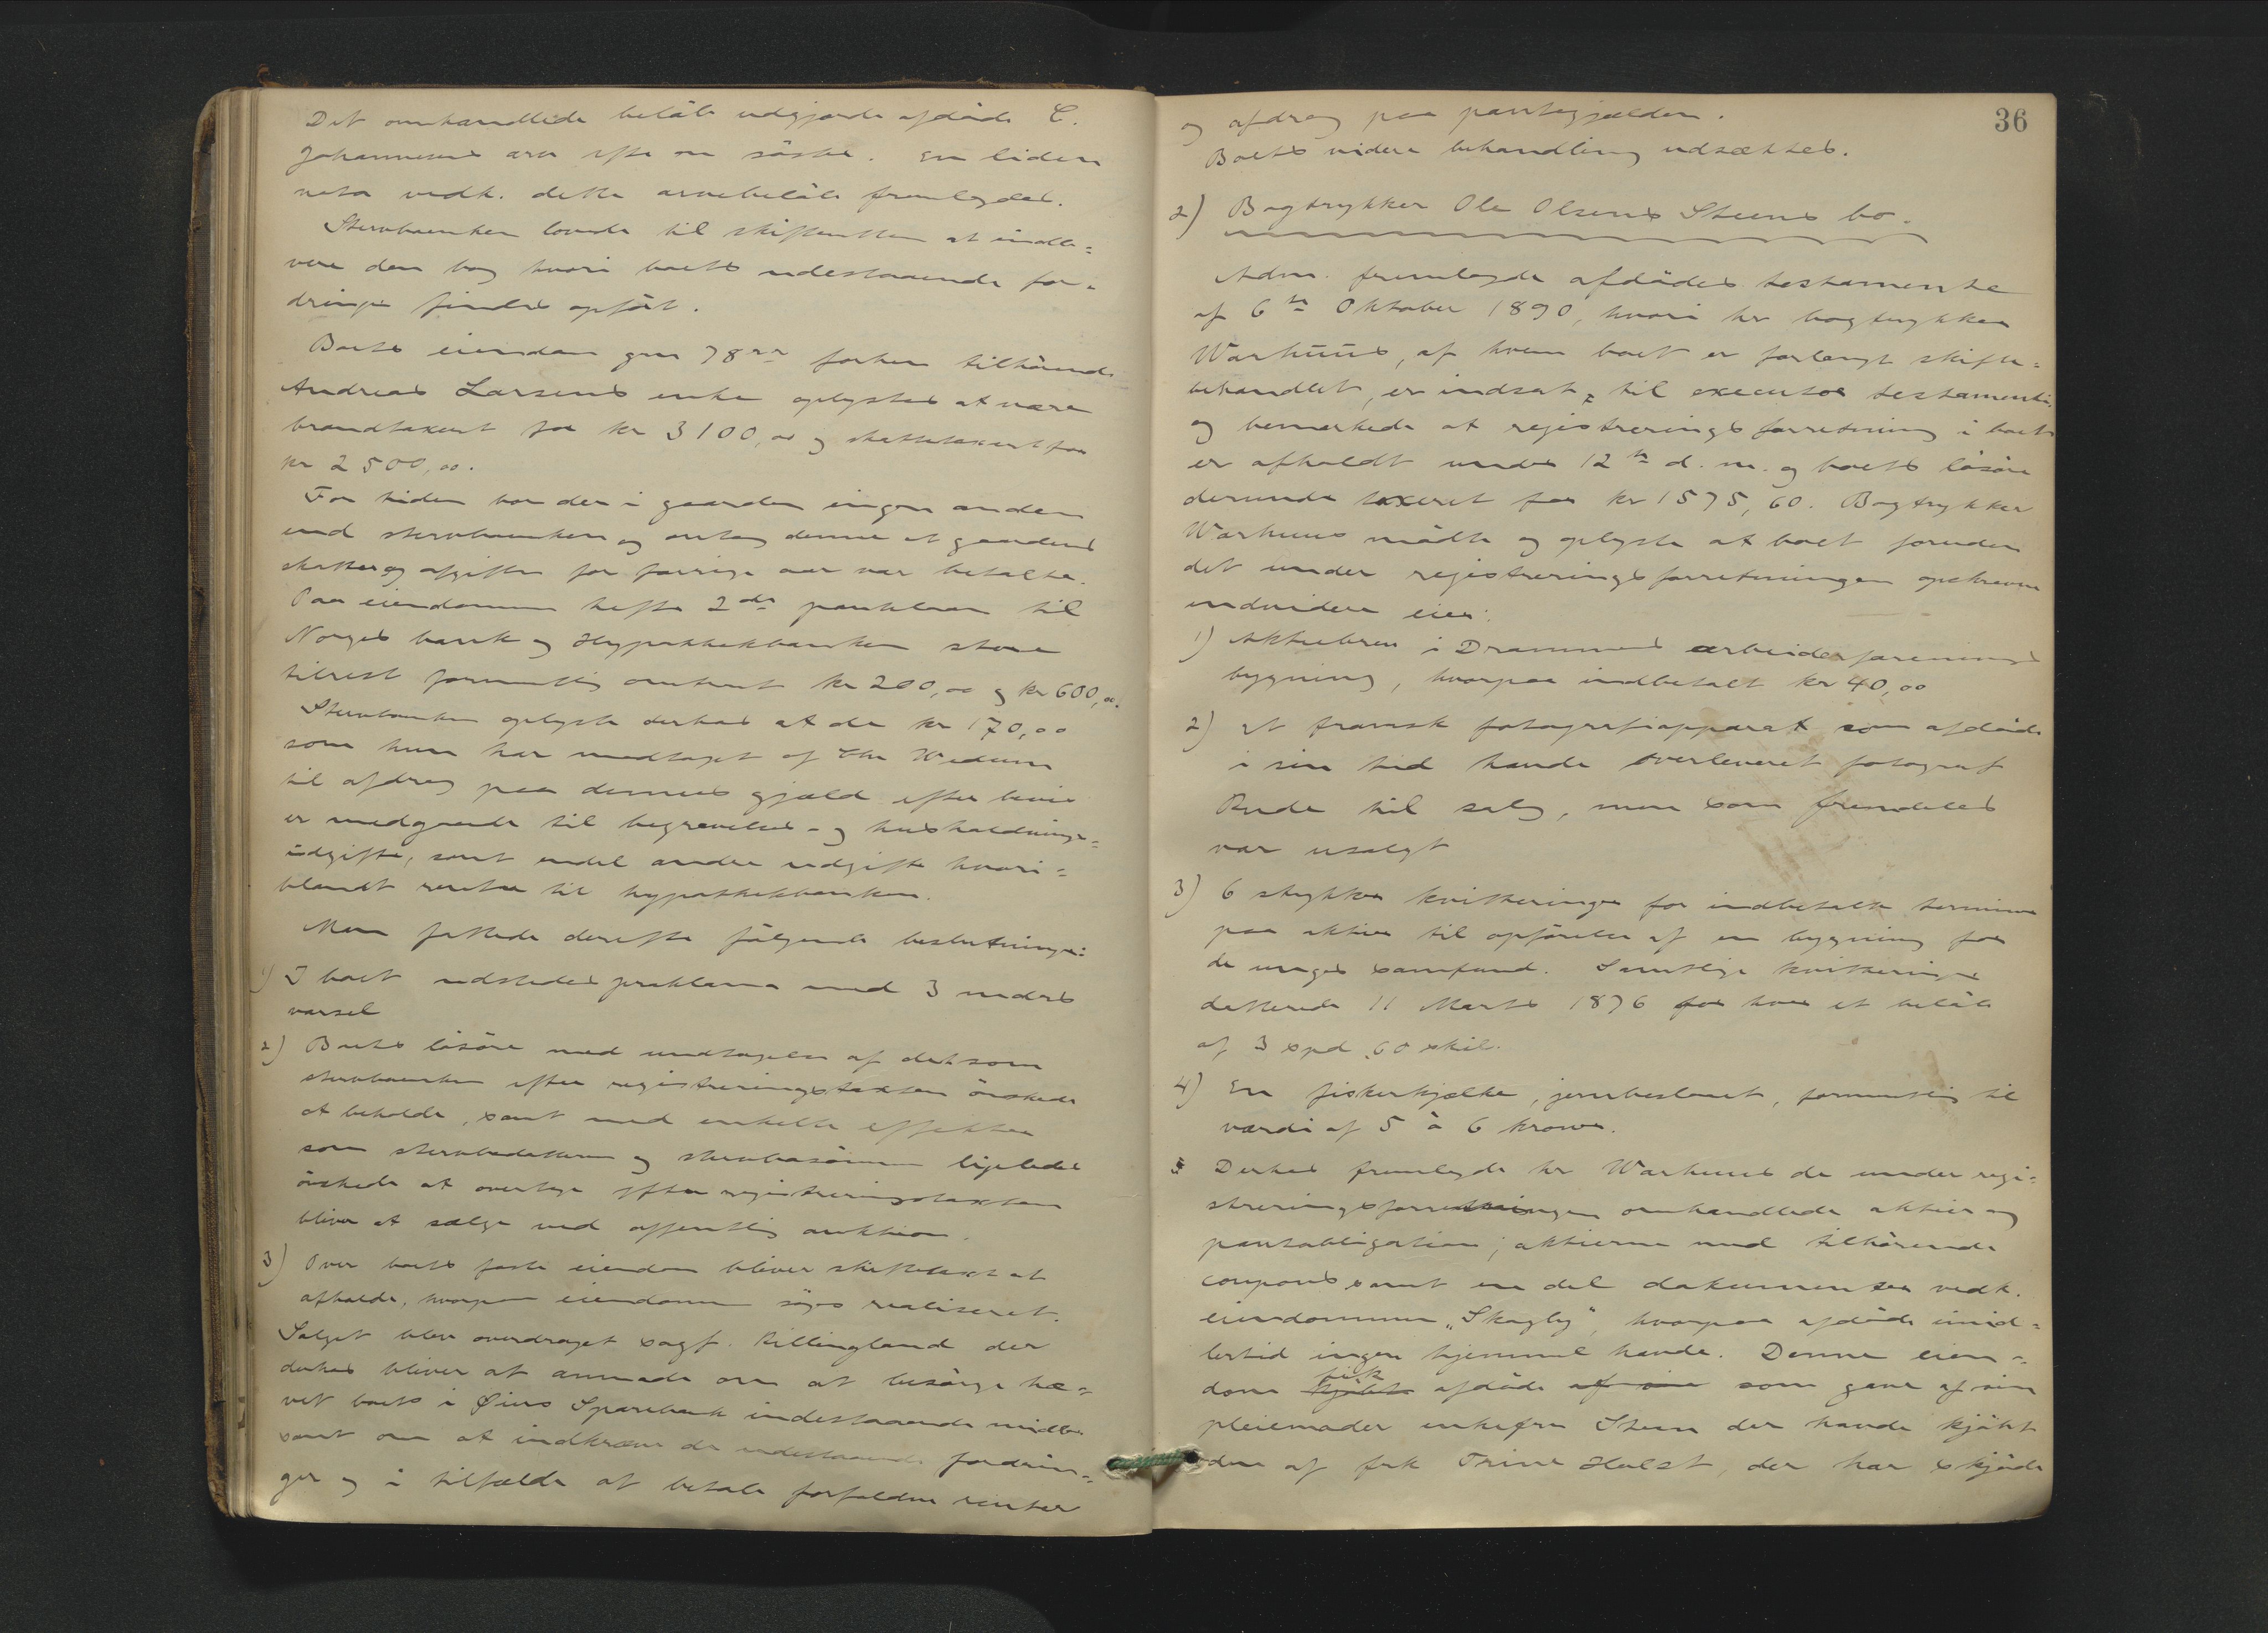 Det omhandlede belöb udgjorde afdöde C.
Johannesens arv efter en söster. En liden
nota vedk. dette arvebelöb fremlagdes.
Stervboenken lovede til skifteretten at indle=
vere den bog hvori boets udestaaende for=
dringer findes opfört.
Boets eiendom gm 78 forhen tilhörende
Andreas Larsens enke oplystes at være
brandtaxeret for kr 3100,00 og skattetaxeret for
kr 2500,00.
For tiden bor der i gaarden ingen anden
end stervboenken og antog denne at gaardens
skatter og afgifter for forrige aar var betalte.
Paa eiendommen hefter 2de pantelaan til
Norges bank og Hypothekbanken store
tilrest formentlig omtrent kr 200,00 og kr 600,00.
Stervboenken oplyste derhos at de kr 170,00
som hun har modtaget af Chr Wedum
til afdrag paa dennes gjæld efter bevis
er medgaaede til begravelses- og husholdnings=
udgifter, samt endel andre udgifter hvori=
blandt renter til hypothekbanken.
Man fattede derefter fölgende beslutninger:
1) I boet udstedes proklama med 3 mdrs
varsel
2) Boets lösöre med undtagelse af det som
stervboenken efter registreringstaxten önskede
at beholde, samt med enkelte effekter
som stervbodatteren og stervbosönnen ligeledes
önskede at overtage efter registreringstaxten
bliver at sælge ved offentlig auktion.
3) Over boets faste eiendom bliver skiftetaxt at
afholde, hvorpaa eiendommen söges realiseret.
Salget blev overdraget sagf. Killingland der
derhos bliver at anmode om at besörge hæ=
vet boets i Öiers Sparebank indestaaende midler
samt om at indkræve de udestaaende fordrin=
ger og i tilfælde at betale forfaldne renter
36
og afdrag paa pantegjælden.
Boets videre behandling udsættes.
2) Bogtrykker Ole Olsens Steens bo.
Adm. fremlagde afdödes testamente
af 6te Oktober 1890, hvori hr bogtrykker
Warhuus, af hvem boet er forlangt skifte=
behandlet, er indsat til executor testamenti,
og bemærkede at registreringsforretning i boet
er afholdt under 12te d. m. og boets lösöre
derunder taxeret for kr 1575,60. Bogtrykker
Warhuus mödte og oplyste at boet foruden
det under registreringsforretningen opskrevne
endvidere eier:
1) Aktiebrev i Drammens arbeiderforenings
bygning, hvorpaa indbetalt kr 40,00
2) Et fransk fotografiapparat som afdöde
i sin tid havde overleveret fotograf
Rude til salg, men som fremdeles
var usolgt
3) 6 stykker kvitteringer for indbetalte terminer
paa aktier til opförelse af en bygning for
de unges samfund. Samtlige kvitteringer
daterede 11 Marts 1876 for hver et belöb
af 3 spd 60 skil.
4) En fiskerkjælke, jernbeslaaet, formentlig til
værdi af 5 à 6 kroner.
5 Derhos fremlagde hr Warhuus de under regi=
streringsforretningen omhandlede aktier og
pantobligation; aktierne med tilhörende
coupons samt en del dokumenter vedk.
eiendommen „Skogly", hvorpaa afdöde imid=
lertid ingen hjemmel havde. Denne eien=
dom fik afdöde som gave af sin
pleiemoder enkefru Steen der havde kjöbt
den af frk Trine Holst, der har skjöde